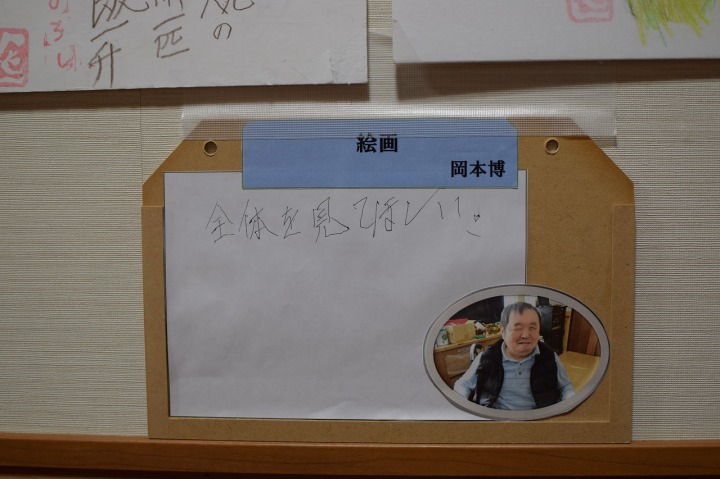 の
一匹
一升
絵画
岡本博
全体を見てほしい。